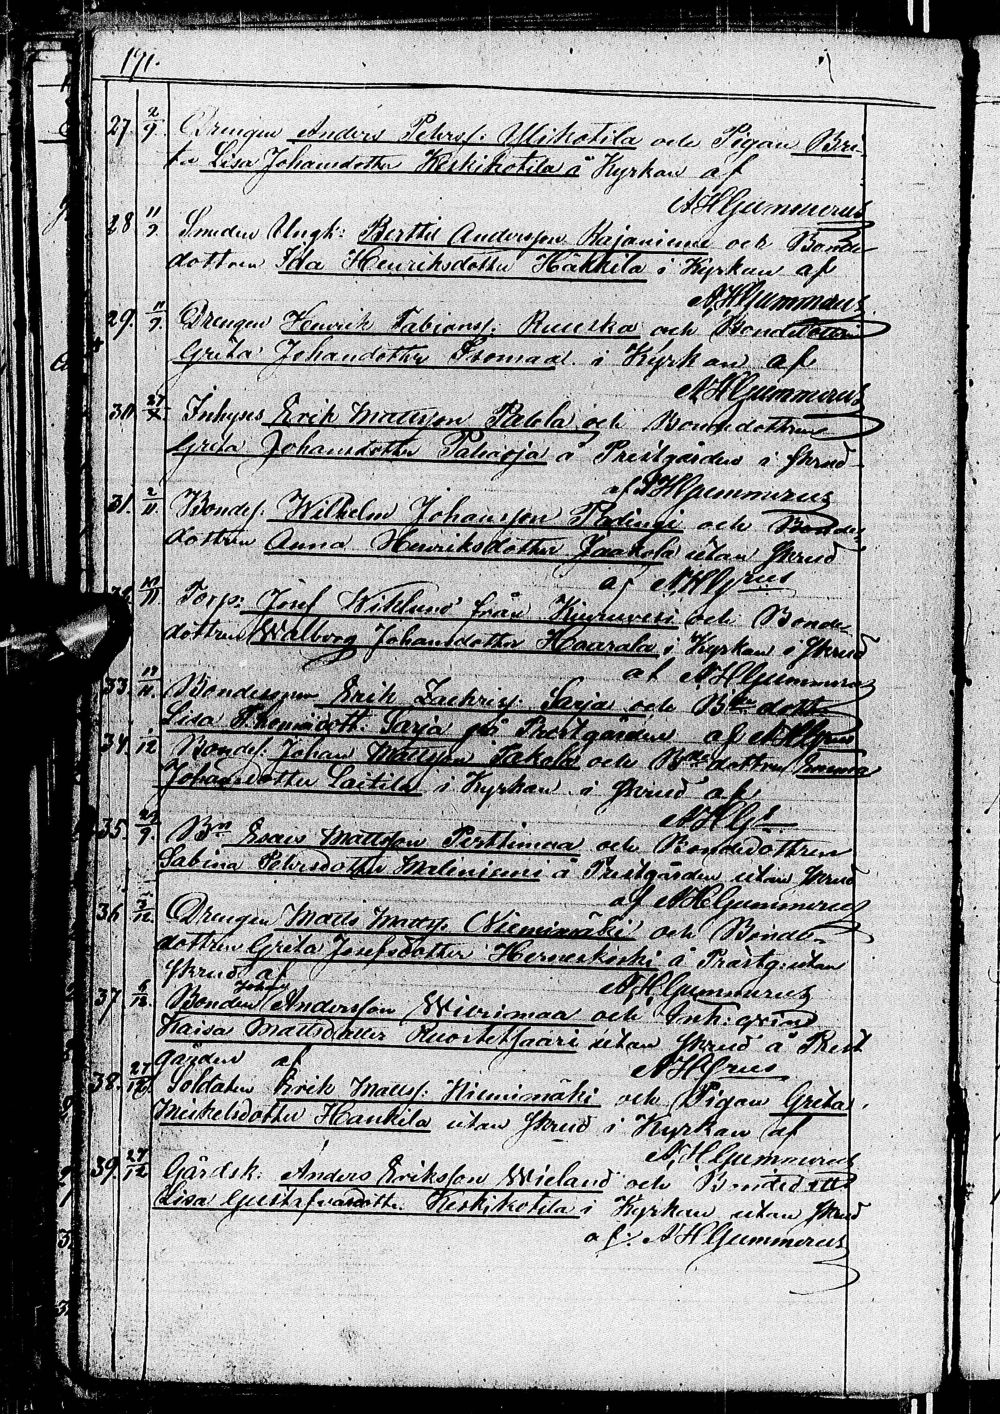 171.
27. 2/9. Drengen Anders Pehrsf: Ylikotila och Pigan Bri-
ta Lisa Johansdotter Keskikotila å Kyrkan af
A H Gummerus
28 11/9. Smeden Ungk: Berttil Andersson Kajaniemi och Bonde
dottren Ida Henriksdotter Häkkilä i Kyrkan af
A H Gummerus
29. 11/9. Drengen Henrik Fabiansf: Ruuska och Bondedottren
Greta Johansdotter i Kyrkan af
A H Gummerus
30. Inhyses Erik Mattsson Palola och Bondedottren
Greta Johansdotter å Prestgården i skrud
af A H Gummerus
31. 2/11. Bondes. Wilhelm Johansson och Bonde-
dottren Anna Henriksdotter Jaakola utan skrud
af A H Grus
Torp: Josef Wiklund från Kiuruvesi och Bonde-
dottren Walborg Johansdotter Haarala i Kyrkan i skrud
af A H Gummerus
33. 17/11. Bondesonen Erik Zachrisf. Sarja och Bde dottr
Lisa Thomædott. Sarja på Prestgården af A H Grus
34. 1/12 Bondes. Johan Mattsson Jakola och Bde dottren Emma
Johansdotter Laitila i Kyrkan i skrud af
A H Gs
35. Bn Esaias Mattsson Perttimaa och Bondedottren
Sabina Pehrsdotter Maliniemi å Prestgården utan skrud
af A H Gummerus
36. 3/12 Drengen Matts Mattsf. Nieminmäki och Bonde-
dottren Greta Josefsdotter Herneskoski å Prästg: utan
skrud af
A H Gummerus
37. 6/12. Bonden Johan Andersson Wiirimaa och Inh: qvinn
Kaisa Mattsdotter Kuortetsaari utan skrud å Prest
gården af
A H Grus
38. 27/12 Soldaten Erik Mattsf: Nieminmäki och Pigan Greta
Mickelsdotter Hankila utan skrud i Kyrkan af
A H Gummerus
39. 27/12 Gårdsk. Anders Eriksson Wieland och Bondedottr
Lisa Gustafvasdottr. Keskikotila i Kyrkan utan skrud
af: A H Gummerus